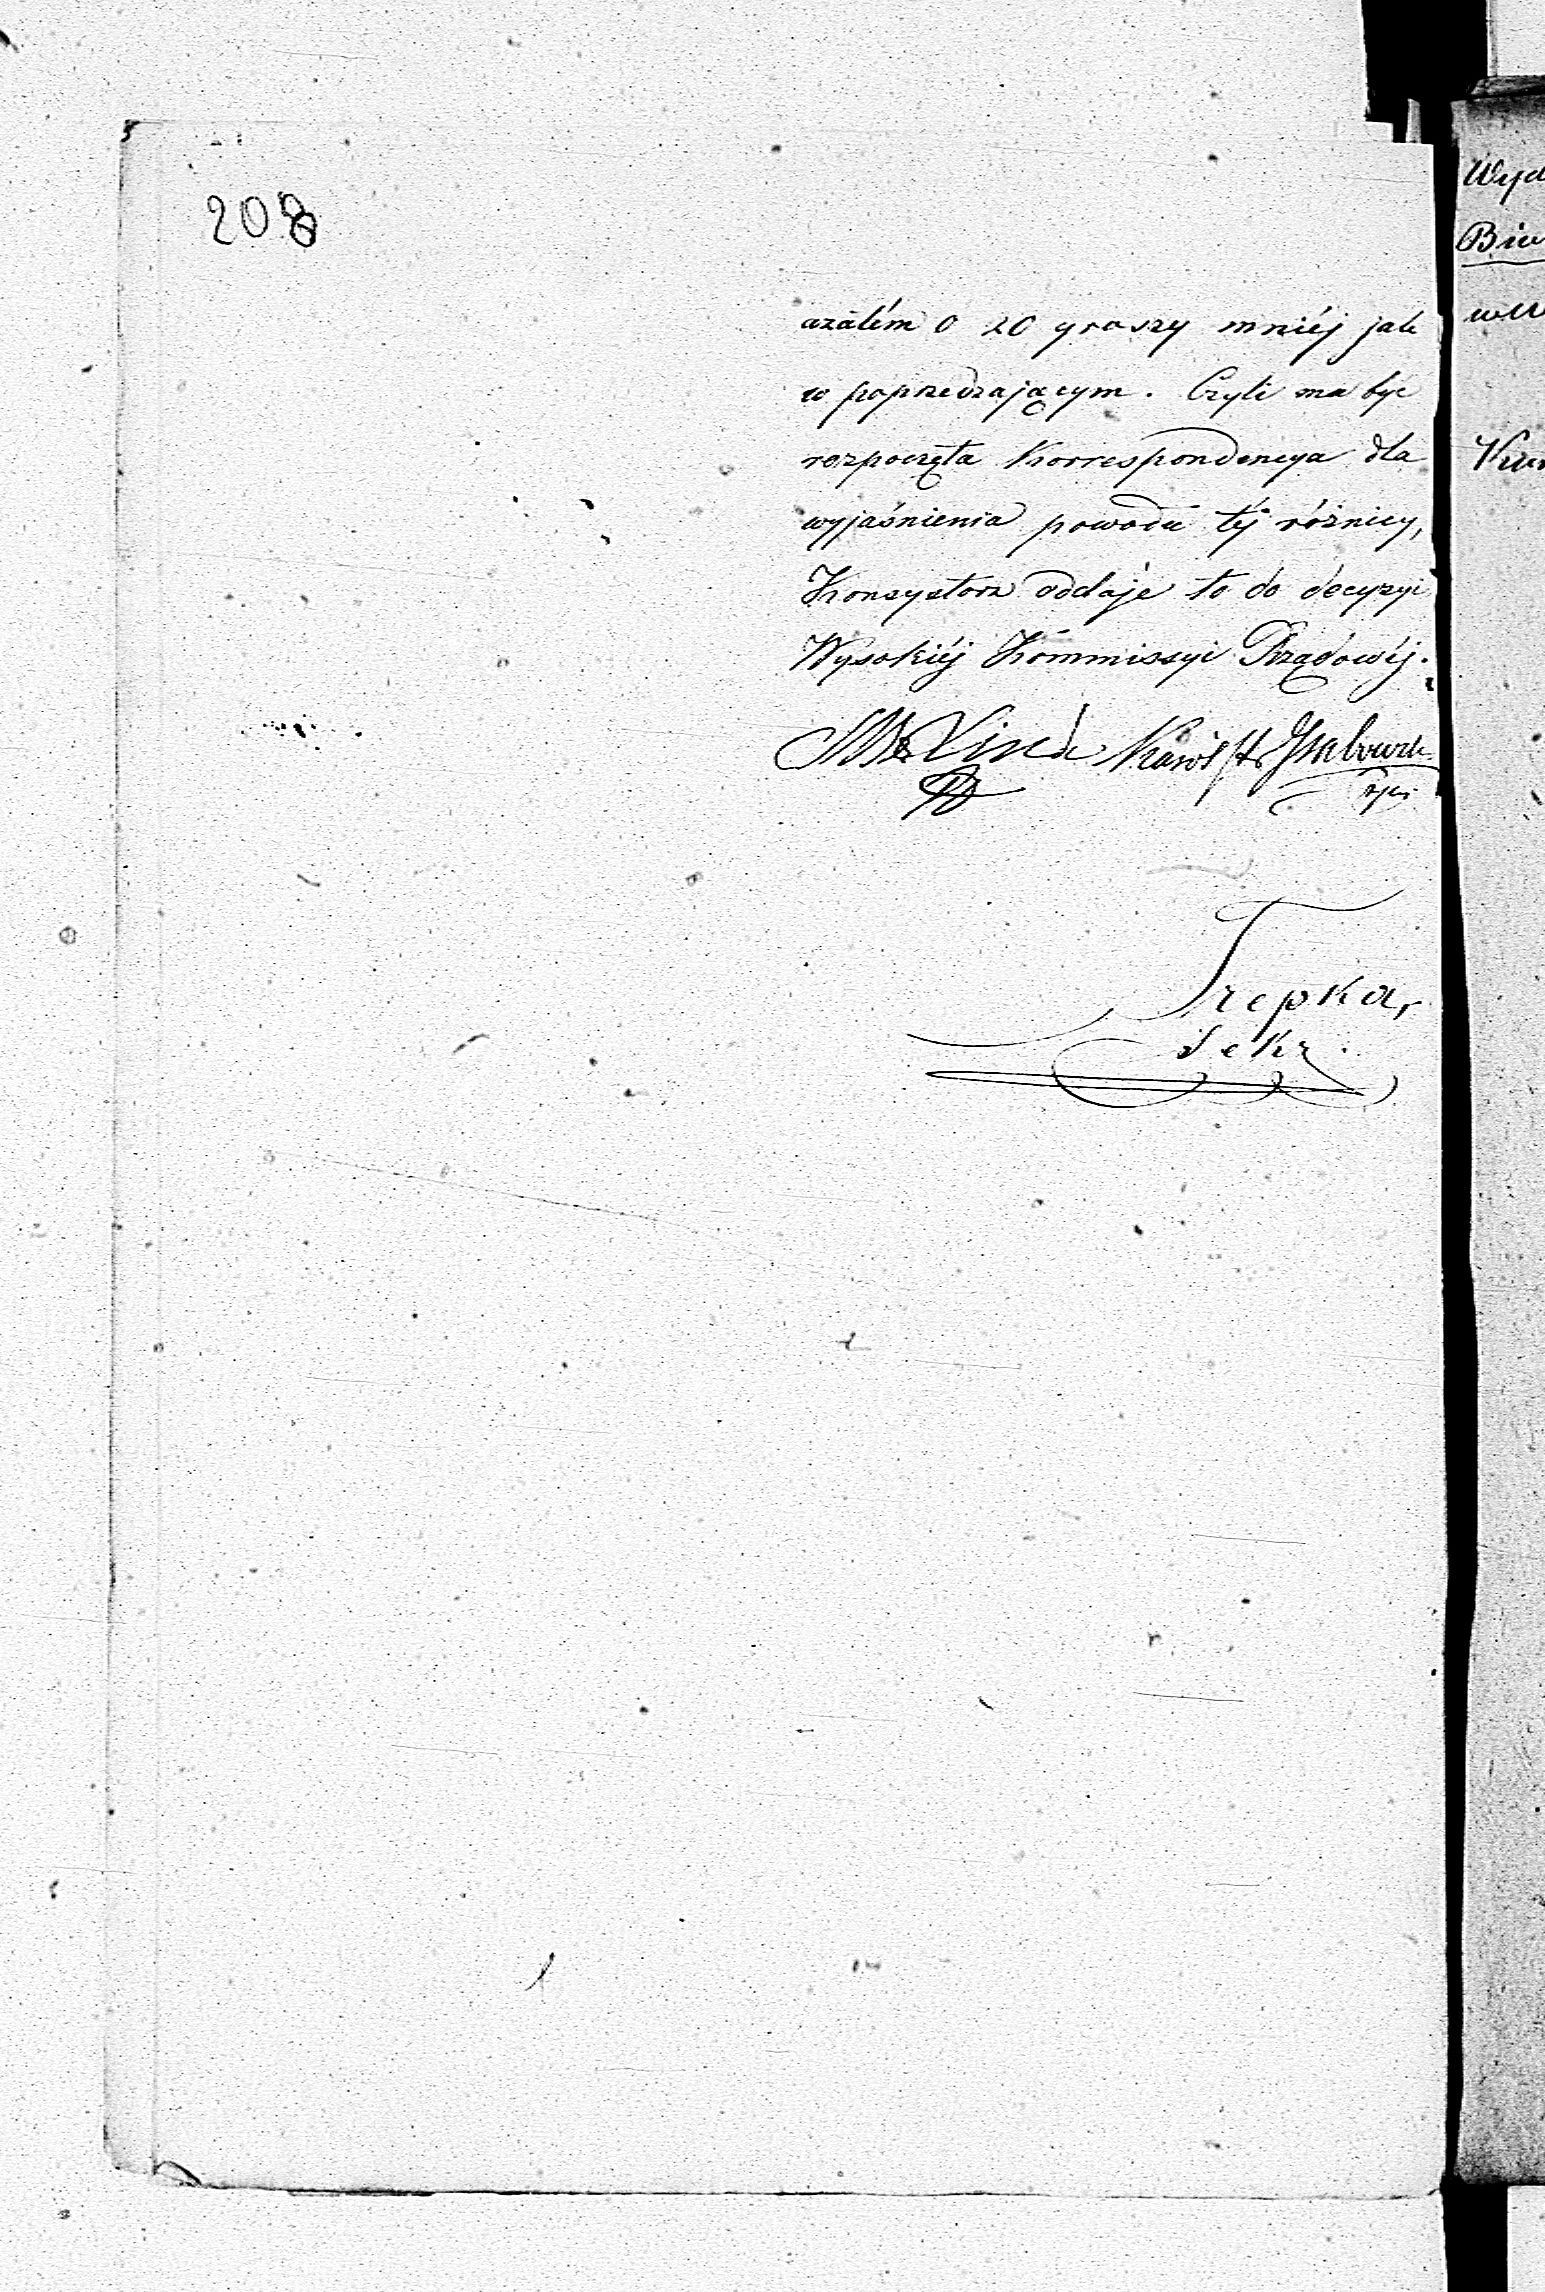 208
azatém o 20 groszy mniéj jak
w poprzedzającym. Czyli ma być
rozpoczęta Korrespondencya dla
wyjaśnienia powodu téj różnicy,
Konsystorz oddaje to do decyzyi
Wysokiéj Kommissyi Rządowéj.
Karol
Trepka,
Sekr.
Wyd
Biu